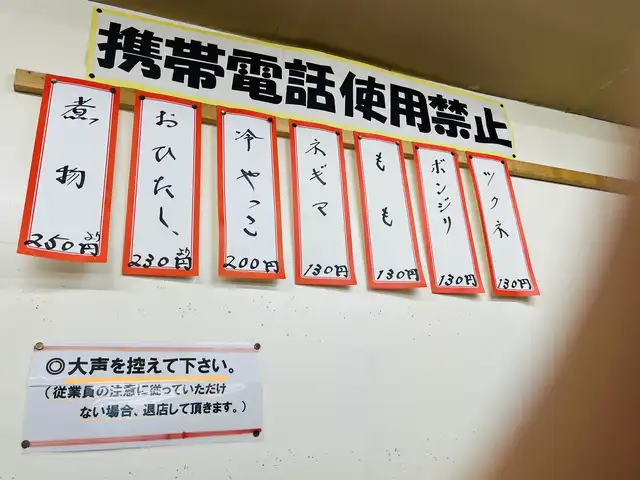 携帯電話使用禁止
煮物
250円より
おひたし
230円より
冷やっこ
200円
ネギマ
130円
もも
130円
ボンジリ
130円
ツクネ
130円
◎大声を控えて下さい。
(従業員の注意に従っていただけ
ない場合、退店して頂きます。)